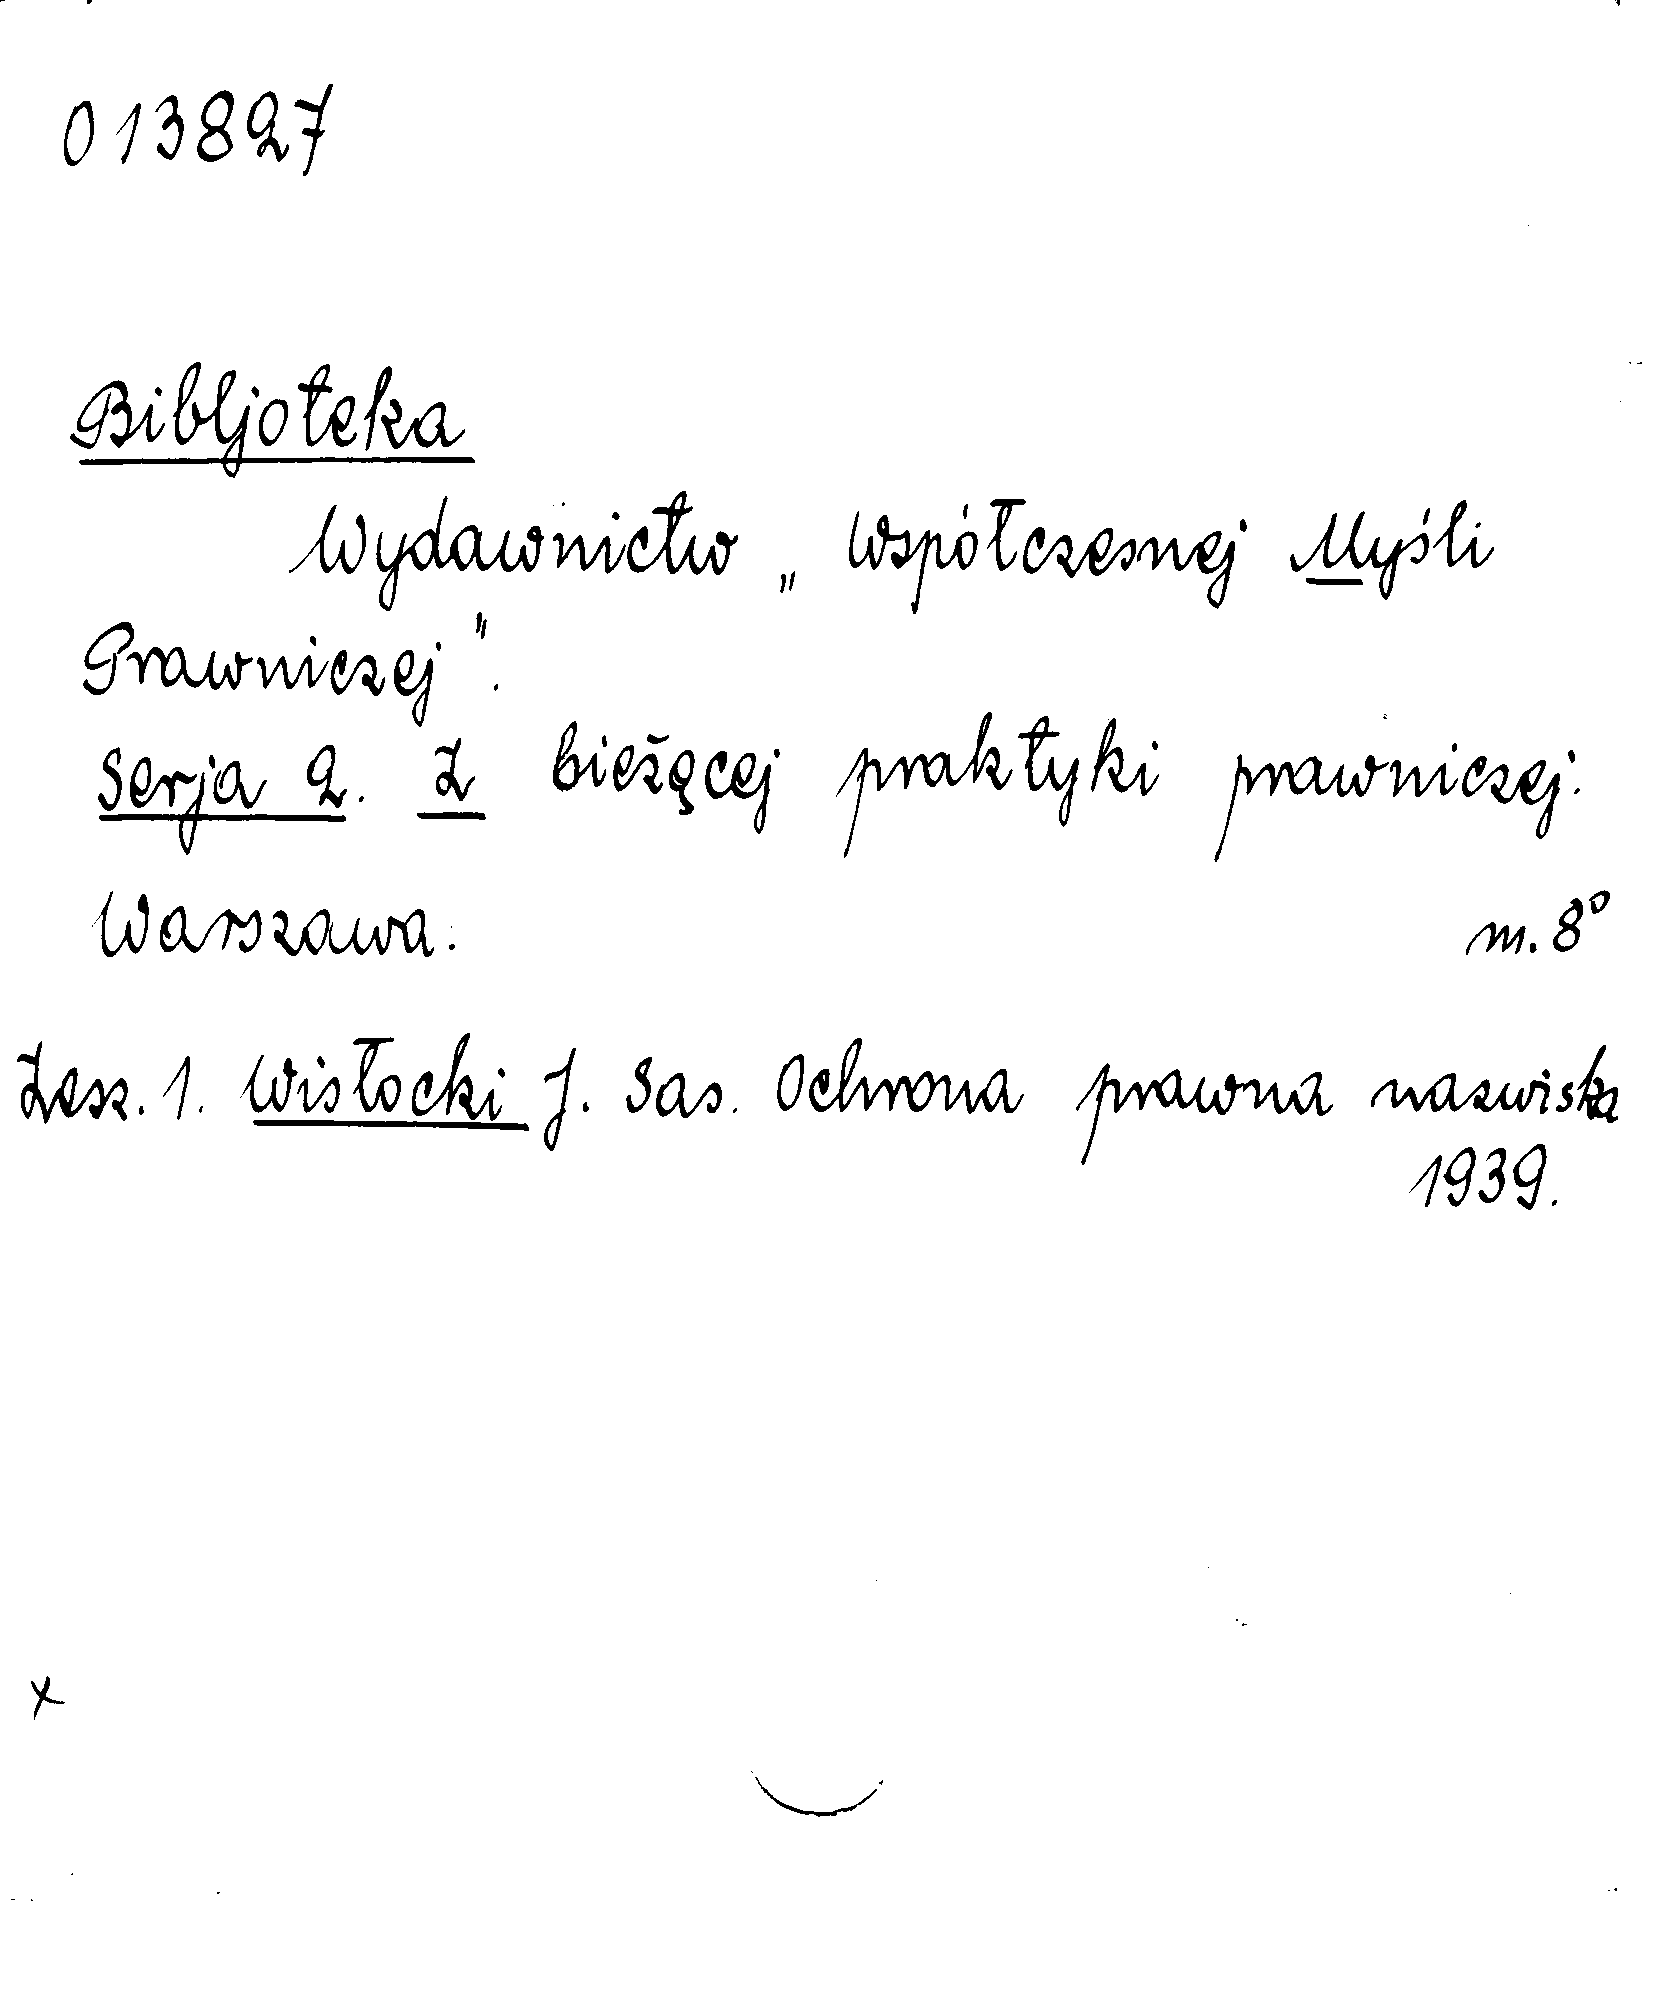 013827
Bibljoteka
Wydawnictwo „Współczesnej Myśli
Prawniczej".
Serja 2. Z bieżącej praktyki prawniczej.
Warszawa. m. 8°
Zesz. 1. Wisłocki J. Sas. Ochrona prawna nazwiska
1939.
x